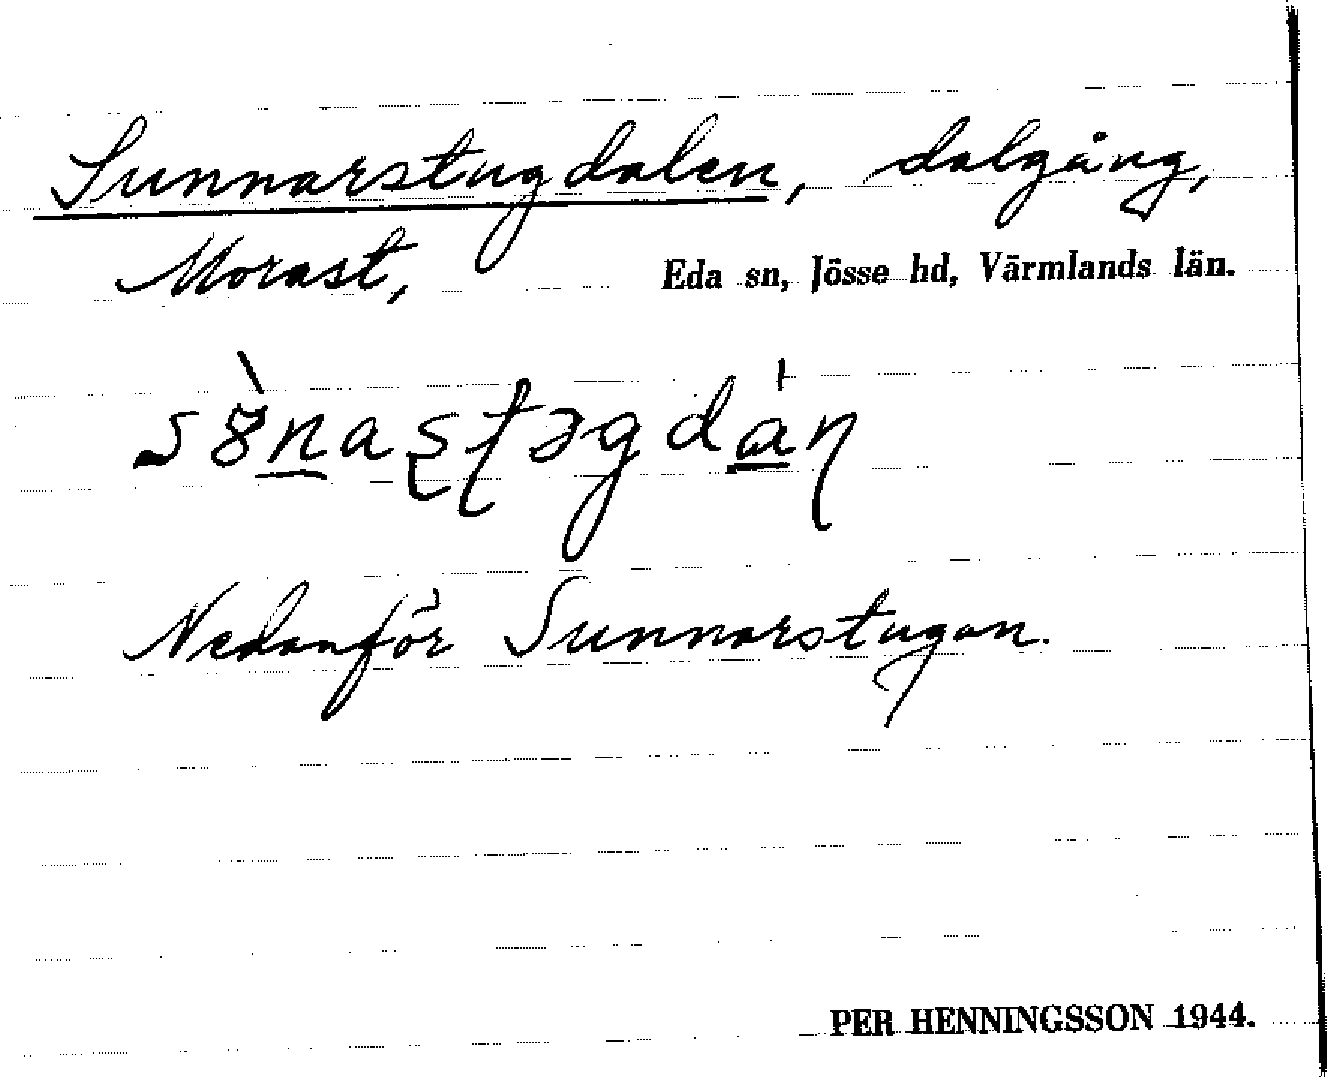 Sunnarstugdalen, dalgång,
Morast, Eda sn, Jösse hd, Värmlands län.
Nedanför Sunnarstugan.
PER HENNINGSSON 1944.